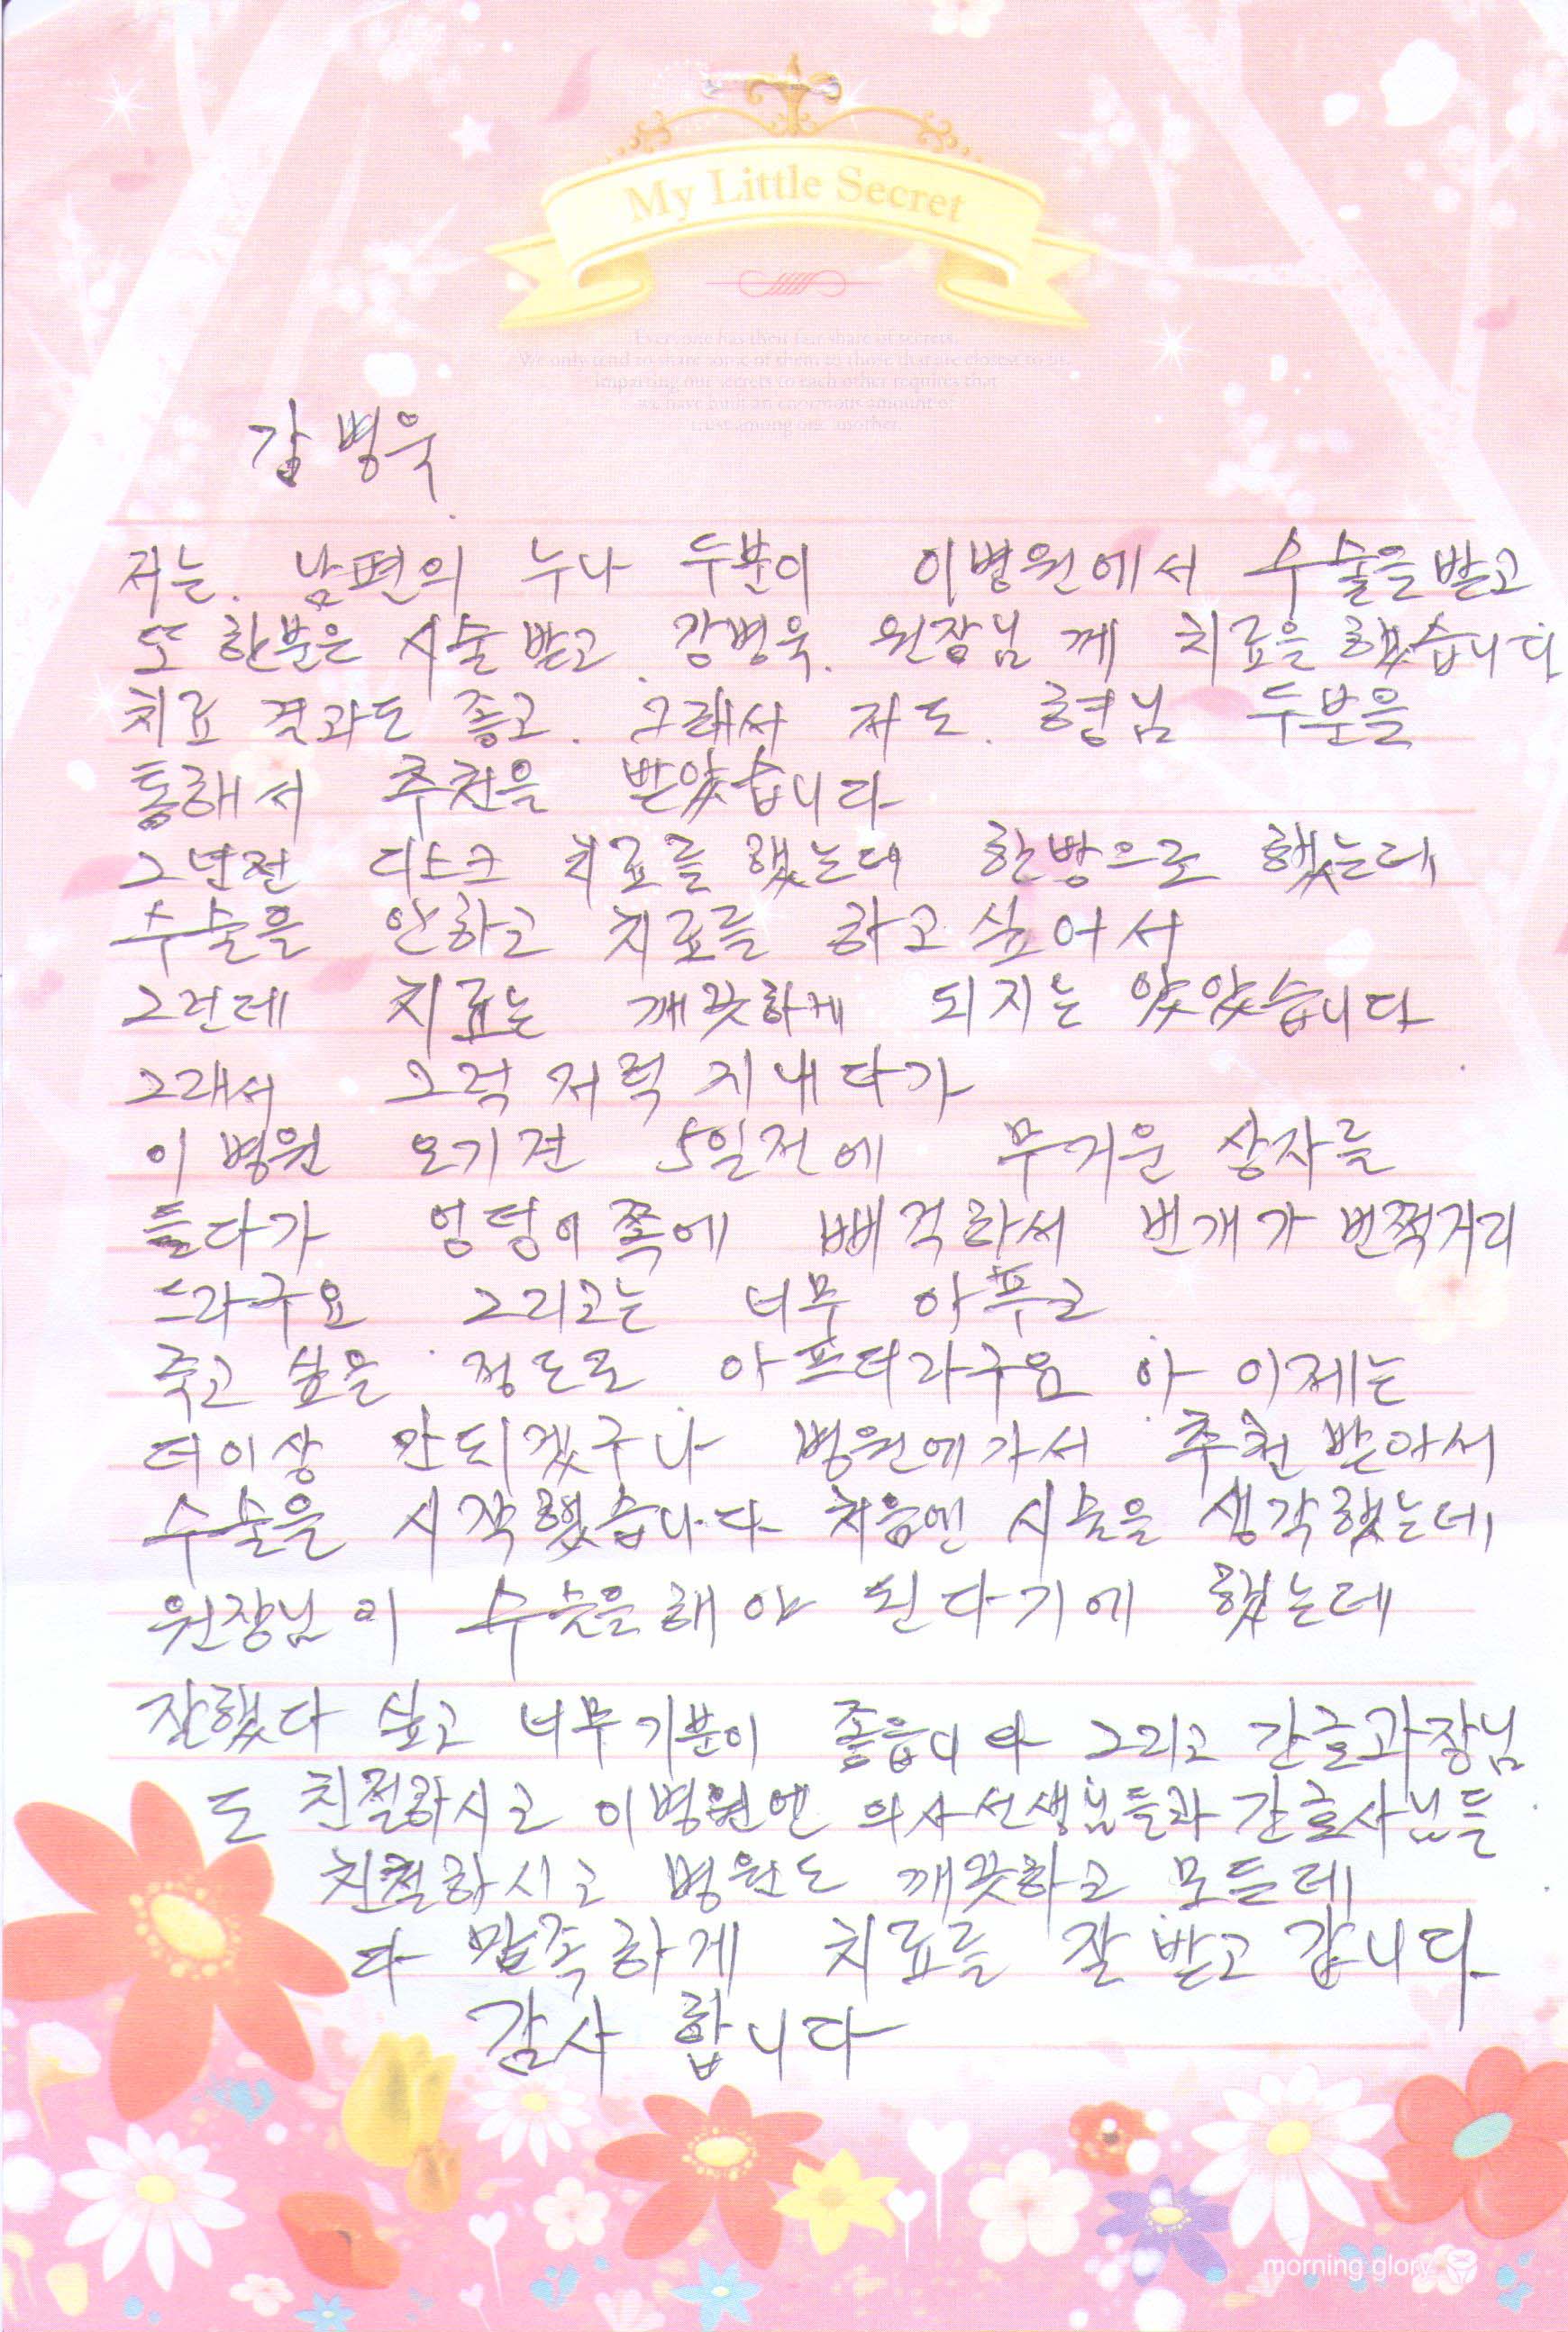 My Little Secret
Everyone has their fair share of secrets.
We only tend to share some of them to those that are closest to us.
Imparting our secrets to each other requires that
we have built an enormous amount of
trust among one another.
강병욱
저는. 남편의 누나 두분이 이병원에서 수술을받고
또 한분은 시술받고. 강병욱. 원장님 께 치료을 했습니다
치료 결과도 좋고. 그래서 저도. 형님 두분을
통해서 추천을 받았습니다
그년전 디스크 치료를 했는데 한방으로 했는데
수술을 안하고 치료를 하고싶어서
그런데 치료는 깨끗하게 되지는 않았습니다
그래서 그럭 저럭 지내다가
이 병원 오기전 5일전에 무거운 상자를
들다가 엉덩이쪽에 삐걱하서 번개가 번쩍거리
드라구요 그리고는 너무 아푸고
죽고 싶을 정도로 아프더라구요 아 이제는
더이상 안되겠구나 병원에가서 추천 받아서
수술을 시작했습니다 처음엔 시술을 생각했는데
원장님이 수술을해야 된다기에 했는데
잘했다 싶고 너무기분이 좋읍니다 그리고 간글과장님
도 친절하시고 이병원엔 의사선생님들과 간호사님들
친절하시고 병원도 깨끗하고 모든데
다 만족하게 치료를 잘 받고 갑니다
감사 합니다
morning glory